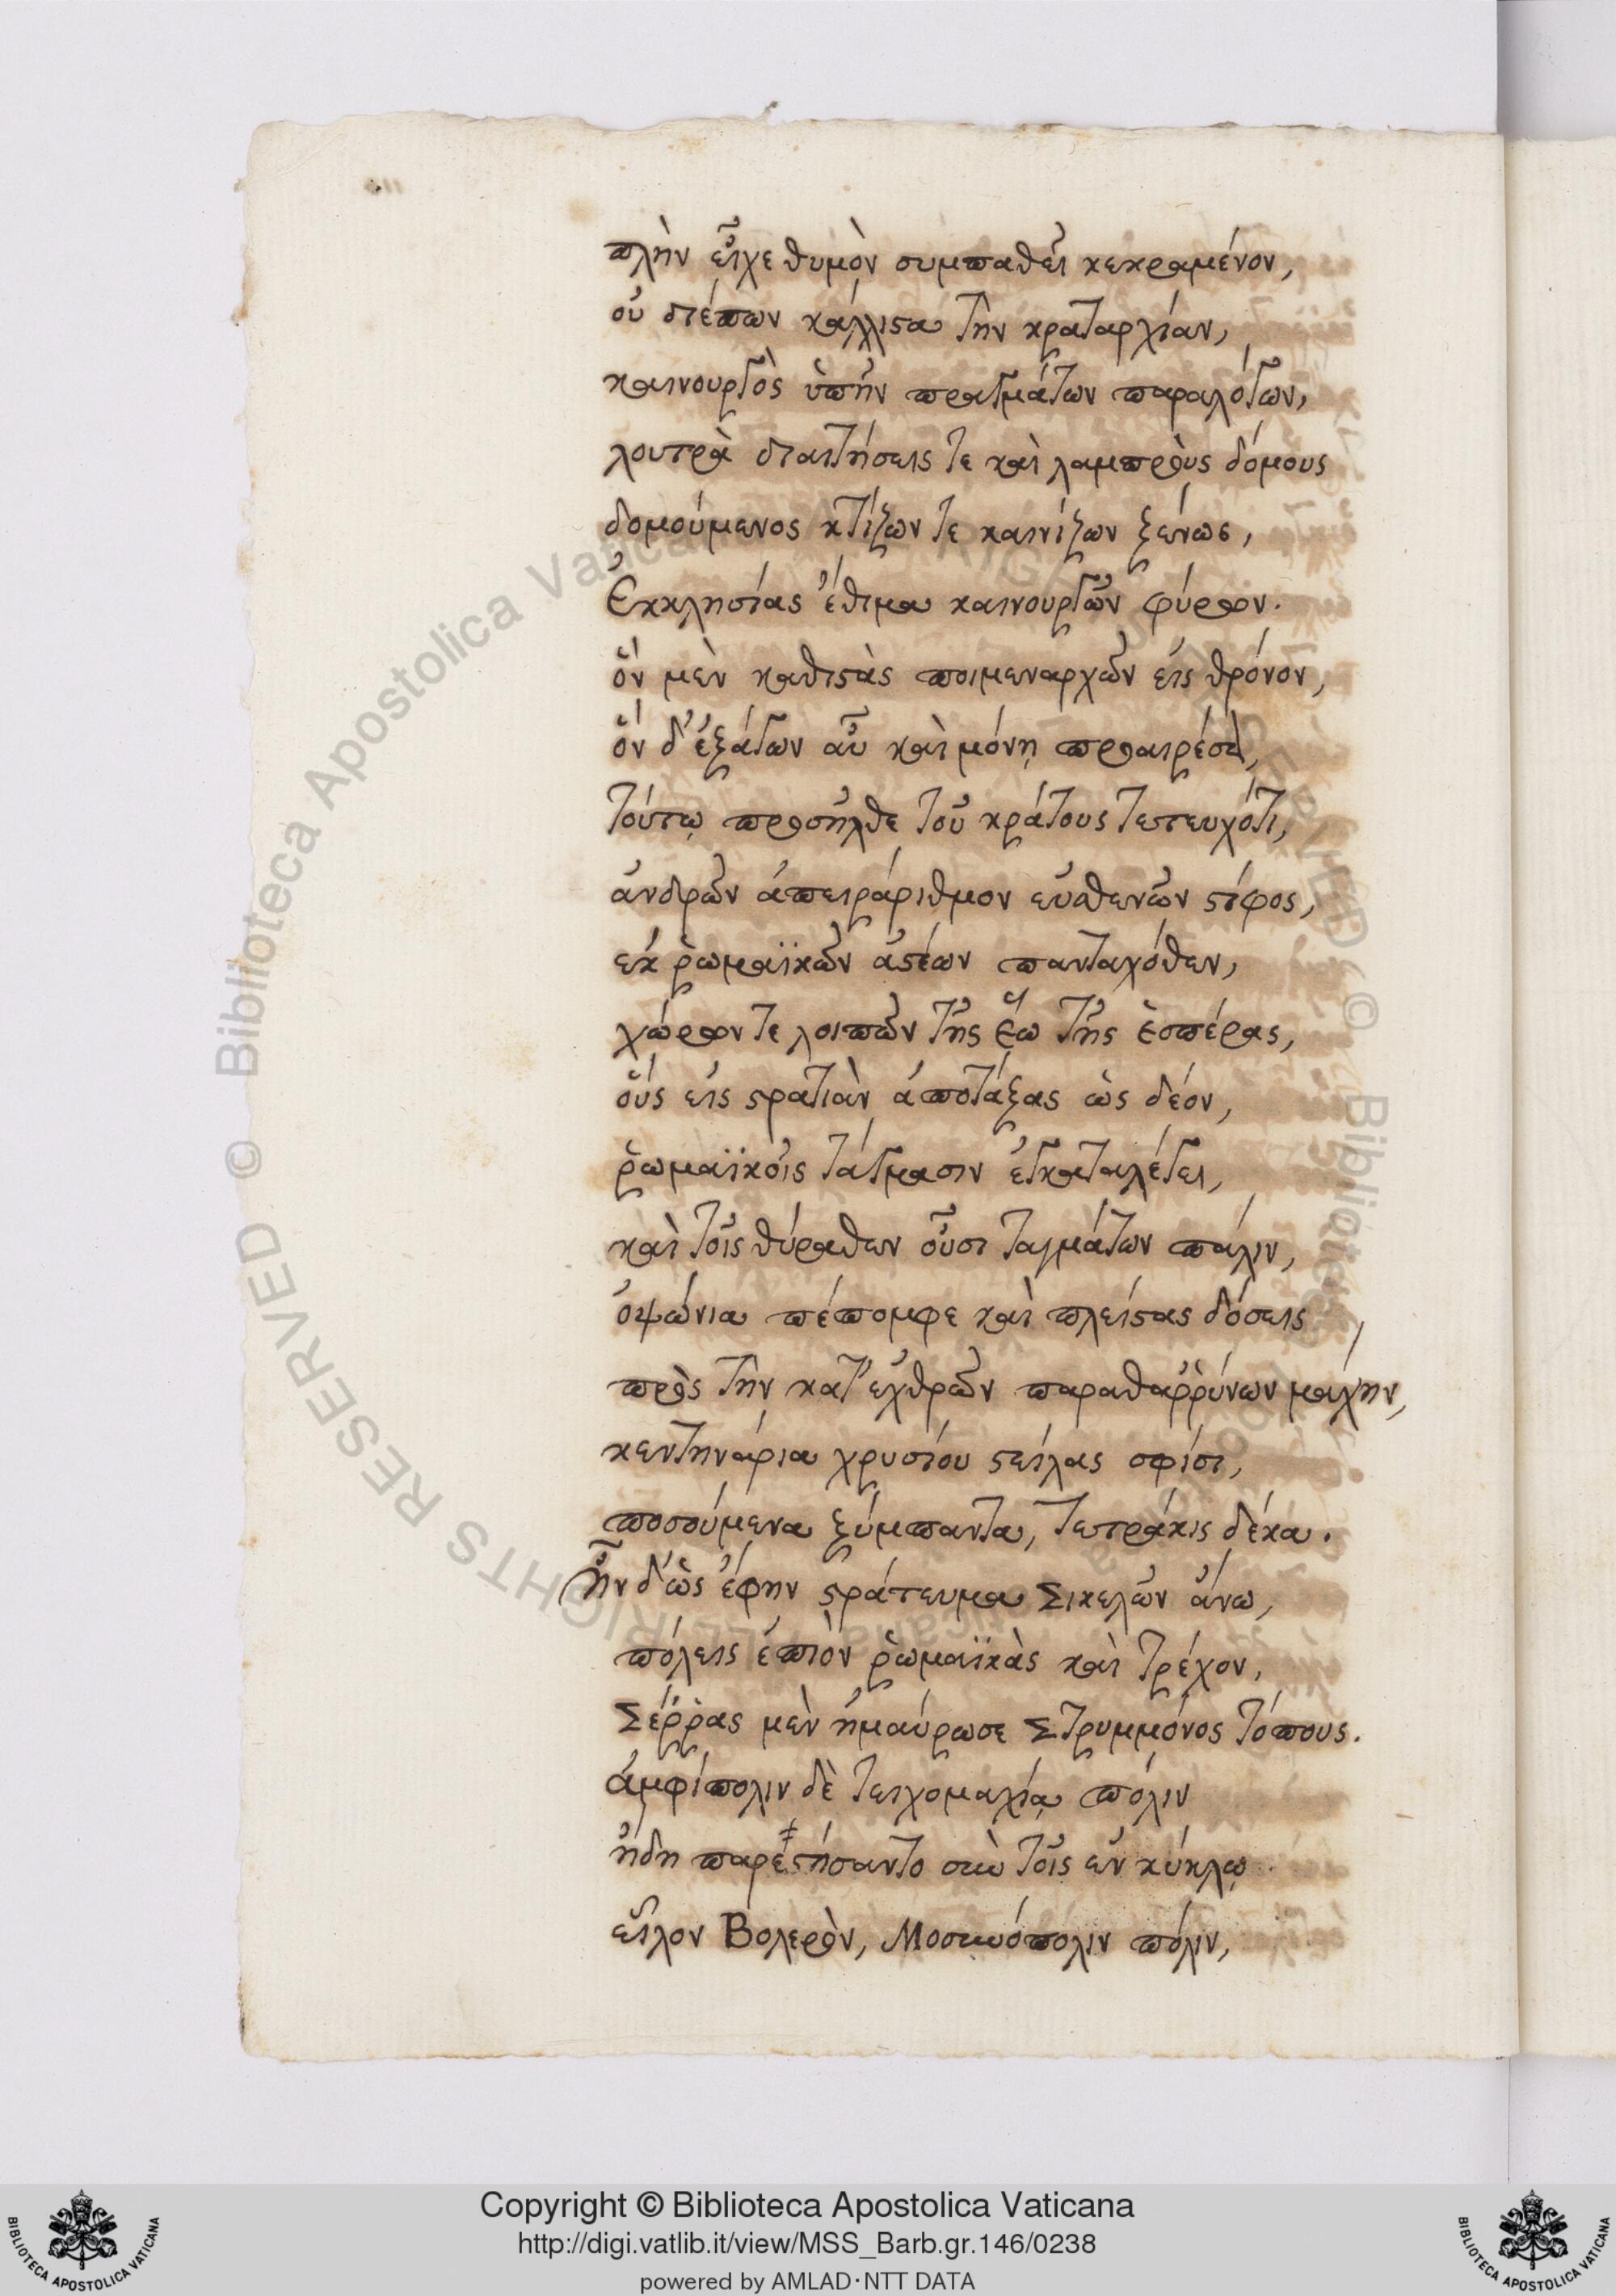 πλὴν εἶχε θυμὸν συμπαθεῖ κεκραμένον,
οὐ διέπων κάλλιστα τὴν κραταρχίαν,
καινουργὸς ὑπῆν πραγμάτων παραλόγων,
λουτρὰ διαιτήσεις τε καὶ λαμπροὺς δόμους
δομούμενος κτίζων τε καινίζων ξένως,
Ἐκκλησίας ἔθιμα καινουργῶν φύρων.
ὃν μὲν καθιστὰς ποιμεναρχῶν εἰς θρόνον,
ὃν δ' ἐξάγων αὖ καὶ μόνῃ προαιρέσει,
τούτῳ προσῆλθε τοῦ κράτους τετευχότι,
ἀνδρῶν ἀπειράριθμον εὐσθενῶν στίφος,
ἐκ ῥωμαϊκῶν ἀστέων πανταχόθεν,
χώρων τε λοιπῶν τῆς ἕω τῆς ἑσπέρας,
οὓς εἰς στρατιὰν ἀποτάξας ὡς δέον,
ῥωμαϊκοῖς τάγμασιν ἐγκαταλέγει,
καὶ τοῖς θύραθεν οὖσι ταγμάτων πάλιν,
ὀψώνια πέπομφε καὶ πλείστας δόσεις
πρὸς τὴν κατ' ἐχθρῶν παραθαῤῥύνων μάχην,
κεντηνάρια χρυσίου στείλας σφίσι,
ποσούμενα ξύμπαντα, τετράκις δέκα.
ἦν δ' ὡς ἔφην στράτευμα Σικελῶν ἄνω,
πόλεις ἐπιὸν ῥωμαϊκὰς καὶ τρέχον,
Σέῤῥας μὲν ἠμαύρωσε Στρυμμόνος τόπους.
ἀμφίπολιν δὲ τειχομαχίᾳ πόλιν
ἤδη παρεστήσαντο σὺν τοῖς ἐν κύκλῳ.
εἷλον Βολερὸν, Μοσυνόπολιν πόλιν,
Copyright © Biblioteca Apostolica Vaticana
http://digi.vatlib.it/view/MSS_Barb.gr.146/0238
powered by AMLAD·NTT DATA